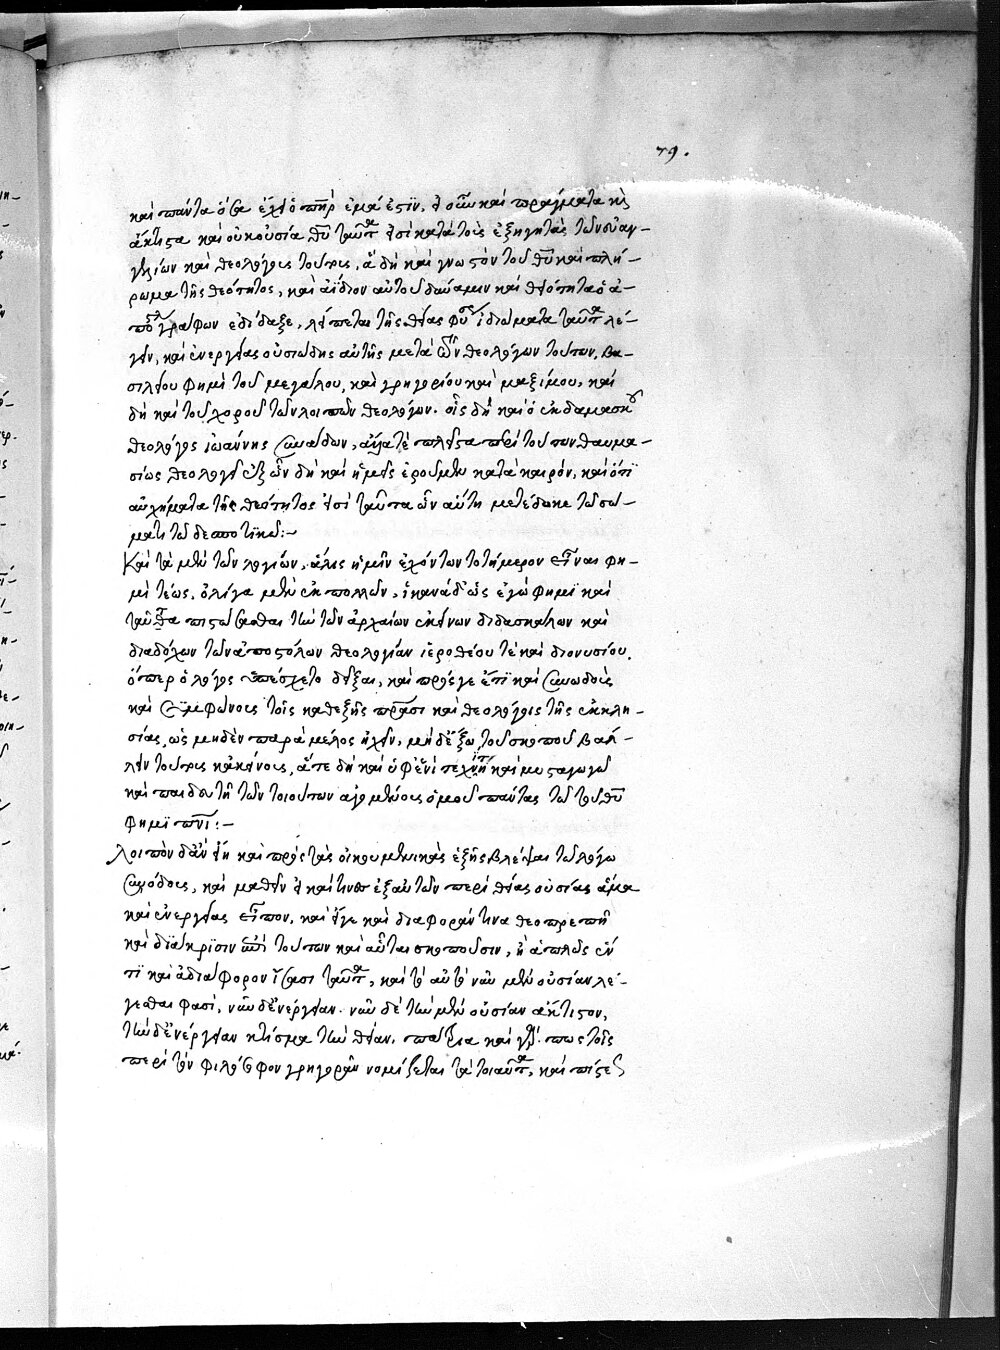 79.
καὶ πάντα ὅσα ἔχει ὁ πὴρ ἐμά ἐστϊν, εἰ οὖν καὶ πράγματα κὶ
ἄκτιστα καὶ οὐκ οὐσία θῦ ταῦτα εἰσὶ κατὰ τοὺς ἐξηγητὰς τῶν εὐαγ-
γελίων καὶ θεολόγους τούτους, ἃ δὴ καὶ γνωστὸν τοῦ θῦ καὶ πλή-
ρωμα τῆς θεότητος, καὶ ἀΐδιον αὐτοῦ δύναμιν καὶ θειότητα ὁ ἀ-
πόστολος γράφων ἐδίδαξε, λείπεται τῆς θείας φύσεως ἰδιώματα ταῦτα λέ-
γειν, καὶ ἐνεργείας οὐσιώδεις αὐτῆς μετὰ τῶν θεολόγων τούτων, βα-
σιλείου φημὶ τοῦ μεγάλου, καὶ γρηγορίου καὶ μαξίμου, καὶ
δὴ καὶ τοῦ χοροῦ τῶν λοιπῶν θεολόγων. οἷς δὴ καὶ ὁ ἐκ δαμασκοῦ
θεολόγος ἰωάννης συνᾴδων, πλεῖστα περὶ τούτων θαυμα-
σίως θεολογεῖ ἐξ ὧν δὴ καὶ ἡμεῖς ἐροῦμεν κατὰ καιρόν, καὶ ὅτϊ
αὐχήματα τῆς θεότητος εἰσὶ ταῦτα ὧν αὕτη μετέδωκε τῷ σώ-
ματι τῷ δεσποτϊκῷ:-
Καὶ τὰ μὲν τῶν λογίων, ἅλις ἡμῖν ἐχόντων τοτήμερον εἶναι φη-
μὶ τέως, ὀλίγα μὲν ἐκ πολλῶν, ἱκανὰ δ' ὡς ἐγὼ φημὶ καὶ
ταῦτα πιστώσασθαι τὴν τῶν ἀρχαίων ἐκείνων διδασκάλων καὶ
διαδόχων τῶν ἀποστόλων θεολογίαν ἱεροθέου τὲ καὶ διονυσίου,
ὅπερ ὁ λόγος ὑπέσχετο δεῖξαι, καὶ πρός γε ἔτϊ καὶ συνῳδοὺς
καὶ συμφώνους τοῖς καθεξῆς πράσι καὶ θεολόγοις τῆς ἐκκλη-
σίας, ὡς μηδὲν παρὰ μέλος ἠχεῖν, μὴδ' ἔξω τοῦ σκοποῦ βάλ-
λειν τούτους κἀκείνους, ἅτε δὴ καὶ ὑφ' ἑνὶ τεχνίτῃ καὶ μυσταγωγῷ
καὶ παιδευτῇ τῶν τοιούτων ἀγομένους ὁμοῦ πάντας τῷ τοῦ θῦ
φημὶ πνϊ:-
Λοιπὸν δ' ἂν εἴη καὶ πρὸς τὰς οἰκουμενικὰς ἑξῆς βλέψαι τῷ λόγῳ
συνόδους, καὶ μαθεῖν εἰ καὶ τινὲς ἐξ αὐτῶν περὶ θείας οὐσίας ἅμα
καὶ ἐνεργείας εἶπον, καὶ εἴγε καὶ διαφοράν τινα θεοπρεπῆ
καὶ δϊάκρϊσιν ἐπὶ τούτων καὶ αὗται σκοποῦσιν, ἢ ἁπλῶς ἕν
τϊ καὶ ἀδιάφορον ἴσασι ταῦτα, καὶ τὸ αὐτὸ νῦν μὲν οὐσίαν λέ-
γεσθαι φασὶ, νῦν δ' ἐνέργειαν. νῦν δὲ τὴν μὲν οὐσίαν ἄκτιστον,
τὴν δ' ἐνέργειαν κτίσμα τὴν θείαν, πάτρια καὶ γὰρ πως τοῖς
περὶ τὸν φιλόσοφον γρηγορᾶν νομίζεται τὰ τοιαῦτα, καὶ πίστις